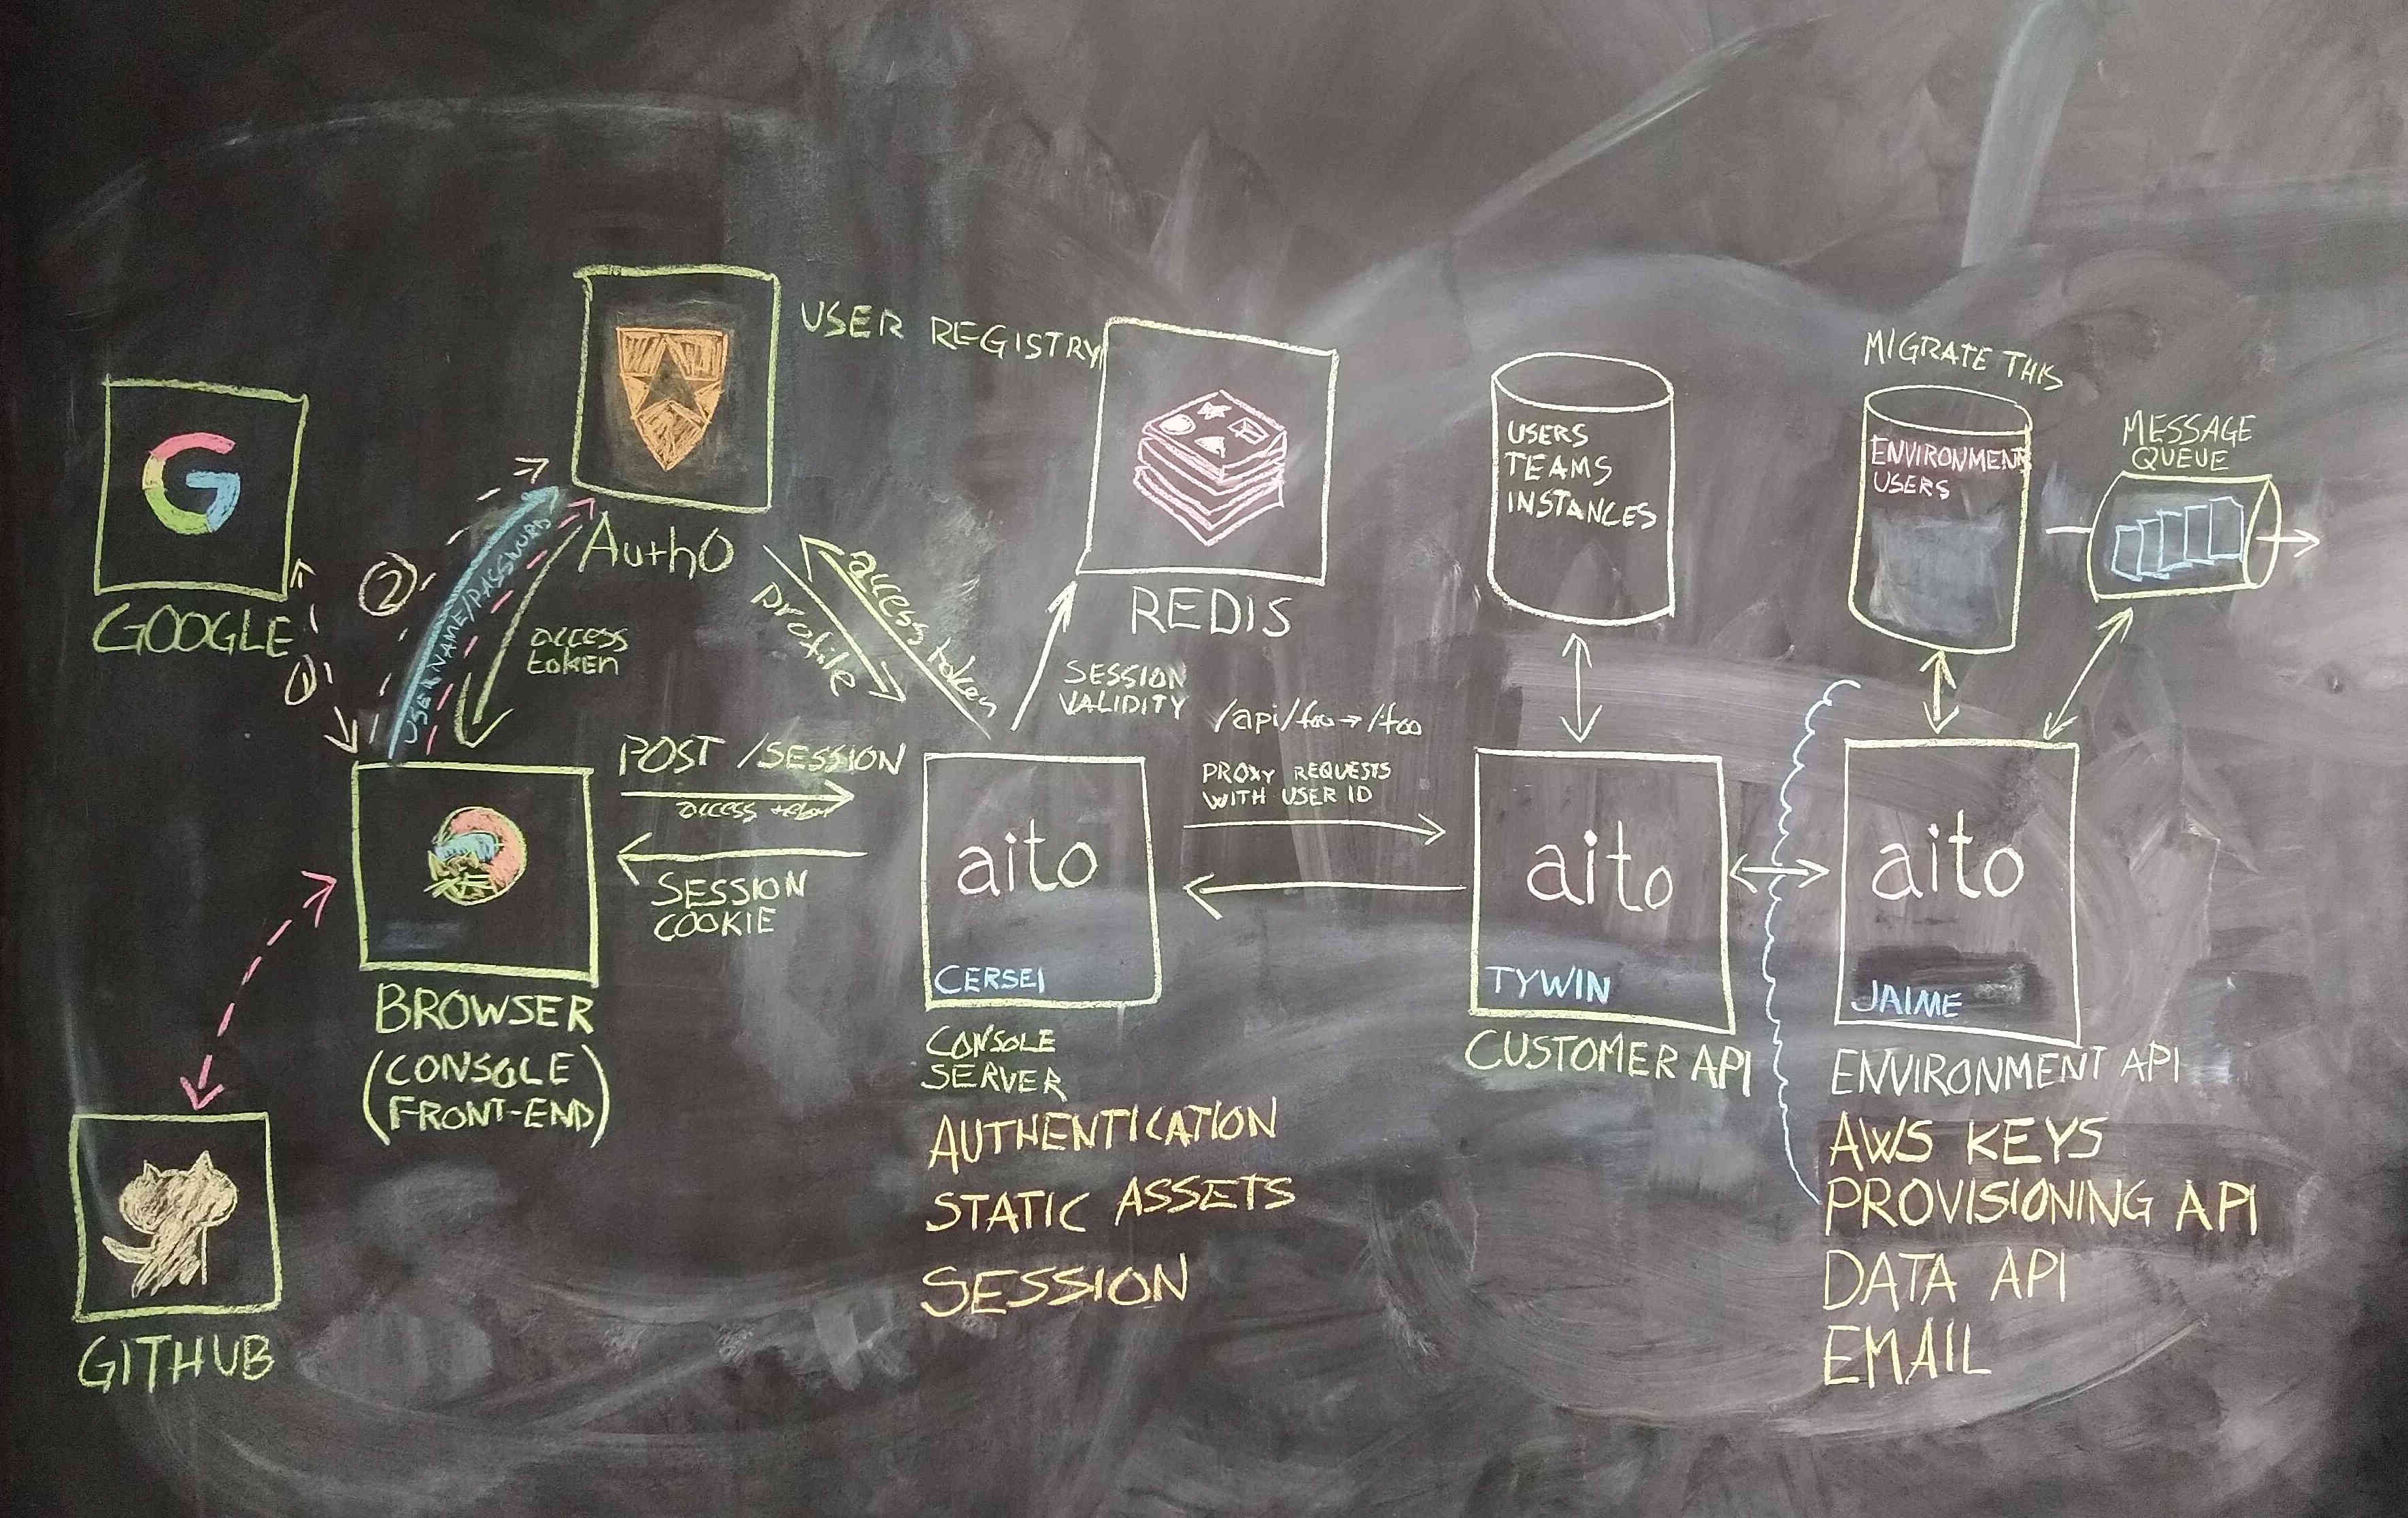 USER REGISTRY
Auth0
GOOGLE
1
2
USERNAME/PASSWORD
access
token
profile
access token
REDIS
SESSION
VALIDITY
USERS
TEAMS
INSTANCES
MIGRATE THIS
ENVIRONMENTS
USERS
MESSAGE
QUEUE
POST /SESSION
access token
SESSION
COOKIE
/api/foo → /foo
PROXY REQUESTS
WITH USER ID
BROWSER
(CONSOLE
FRONT-END)
GITHUB
aito
CERSEI
CONSOLE
SERVER
AUTHENTICATION
STATIC ASSETS
SESSION
aito
TYWIN
CUSTOMER API
aito
JAIME
ENVIRONMENT API
AWS KEYS
PROVISIONING API
DATA API
EMAIL